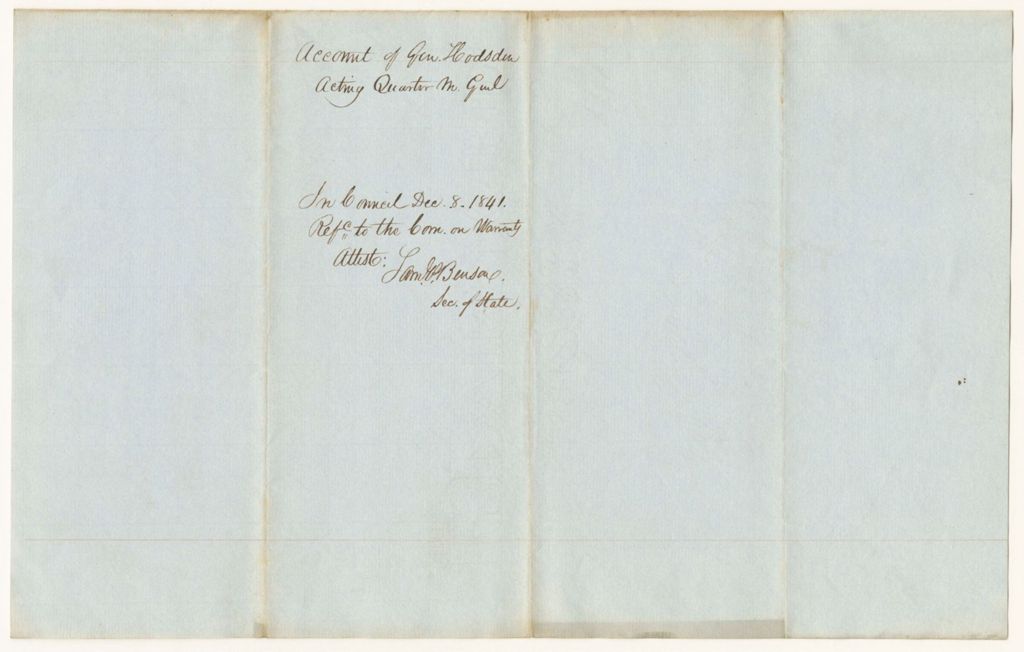 Account of Gen. Hodsdon
Acting Quarter M. Genl
In Council Dec. 8. 1841.
Refd. to the Com. on Warrants
Attest:
Saml. P. Benson.
Sec. of State.